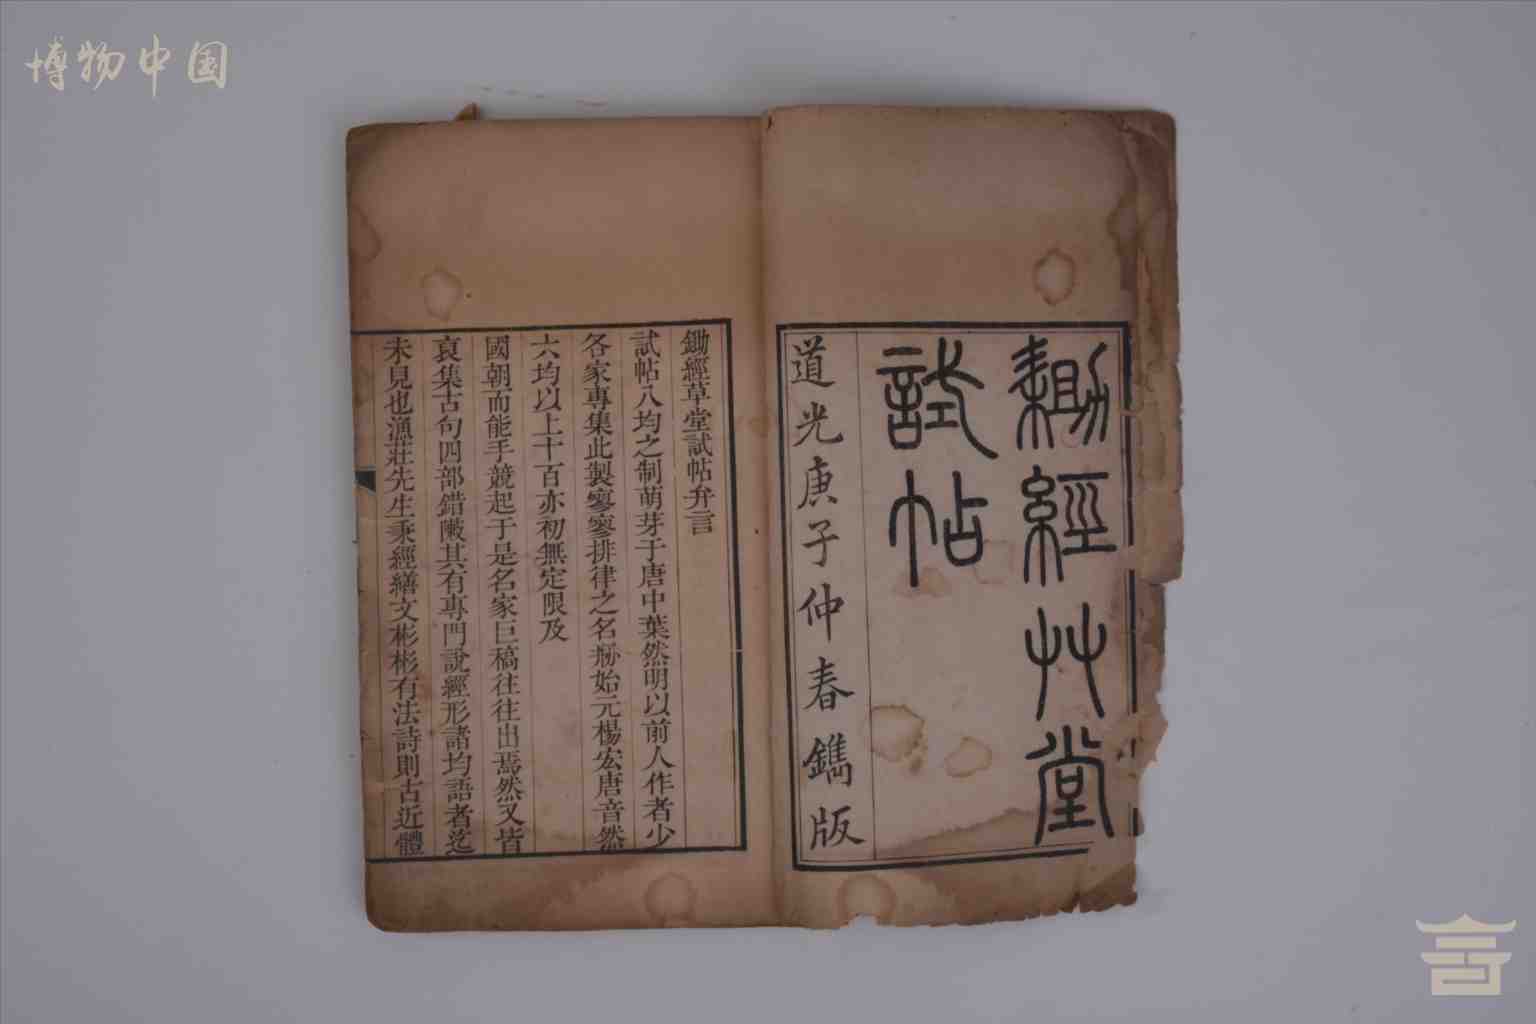 博物中国
耡經艸堂
試帖
道光庚子仲春鐫版
鋤經草堂試帖弁言
試帖八均之制萌芽于唐中葉然明以前人作者少
各家專集此製寥寥排律之名昉始元楊宏唐音然
六均以上十百亦初無定限及
國朝而能手競起于是名家巨稿往往出焉然又皆
裒集古句四部錯陳其有專門說經形諸均語者迄
未見也漁莊先生秉經繕文彬彬有法詩則古近體